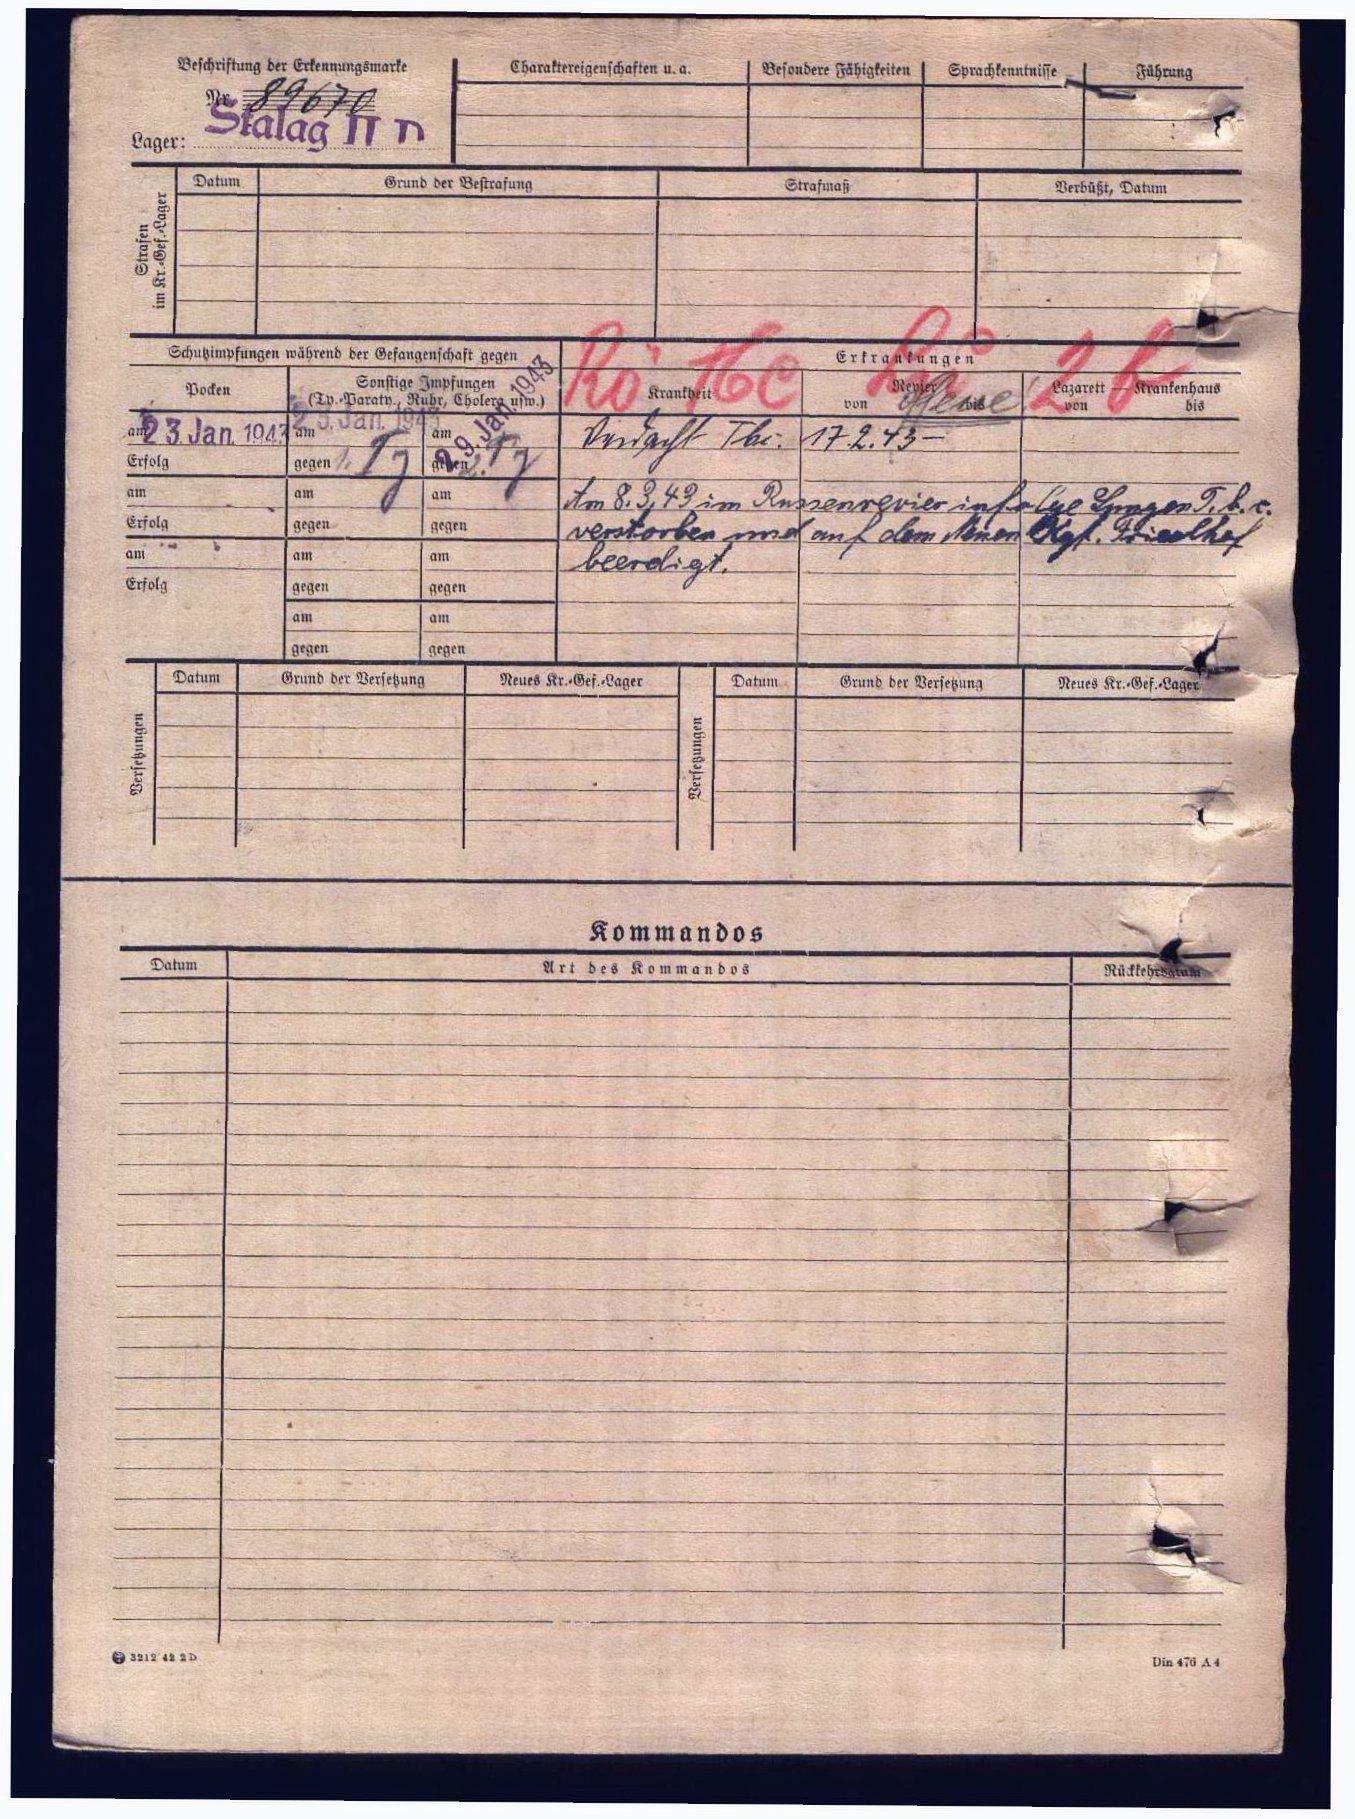 Beschriftung der Erkennungsmarke
Nr. 89670
Lager: Stalag II D
Charaktereigenschaften u. a.
Besondere Fähigkeiten
Sprachkenntnisse
Führung
Strafen
im Kr.-Gef.-Lager
Datum
Grund der Bestrafung
Strafmaß
Verbüßt, Datum
Schutzimpfungen während der Gefangenschaft gegen
Erkrankungen
Pocken
Sonstige Impfungen
(Ty.-Paraty., Ruhr, Cholera usw.)
Krankheit
Revier
von bis
Lazarett Krankenhaus
von bis
Rö 16c 2 b
am 23. Jan. 1943 am 23. Jan. 1943 am 29. Jan. 1943
Verdacht Tbc. 17.2.43 –
Erfolg gegen 1. Ty gegen 2. Ty
am am am
Am 8.3.43 im Russenrevier infolge Lungen T.b.c.
Erfolg gegen gegen
verstorben und auf dem Neuen Kgf. Friedhof
am am am
beerdigt.
Erfolg gegen gegen
am am
gegen gegen
Versetzungen
Datum
Grund der Versetzung
Neues Kr.-Gef.-Lager
Versetzungen
Datum
Grund der Versetzung
Neues Kr.-Gef.-Lager
Kommandos
Datum
Art des Kommandos
Rückkehrdatum
3212 42 2 D
Din 476 A 4